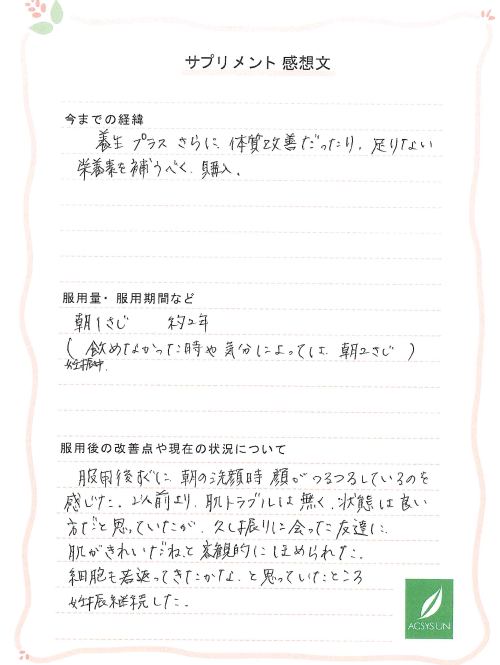 サプリメント 感想文
今までの経緯
養生 プラス さらに、体質改善だったり、足りない
栄養素を補うべく、購入。
服用量・服用期間など
朝1さじ 約2年
( 飲めなかった時や気分によっては、朝2さじ )
妊娠中、
服用後の改善点や現在の状況について
服用後すぐに、朝の洗顔時 顔がつるつるしているのを
感じた。 以前より、肌トラブルは無く、状態は良い
方だと思っていたが、久し振りに会った友達に、
肌がきれいだねと客観的にほめられた。
細胞も若返ってきたかなぁ、と思っていたところ
妊娠継続した。
ACSYSUN